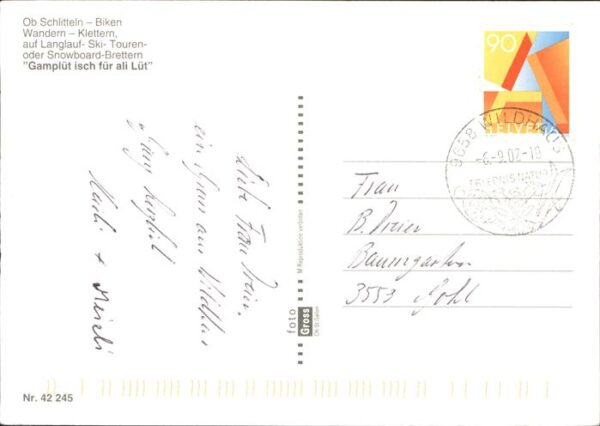 Ob Schlitteln – Biken
Wandern – Klettern,
auf Langlauf- Ski- Touren-
oder Snowboard-Brettern
"Gamplüt isch für ali Lüt"
Liebe Frau Dreier,
ein Gruss aus Wildhaus
Ganz herzlich
+
M Reproduktion verboten
foto
Gross
CH-St.Gallen
90
HELVETIA
9658 WILDHAUS
-6.-9.02-18
ERLEBNIS NATUR
Frau
B. Dreier
Baumgarten
3553 Gohl
Nr. 42 245